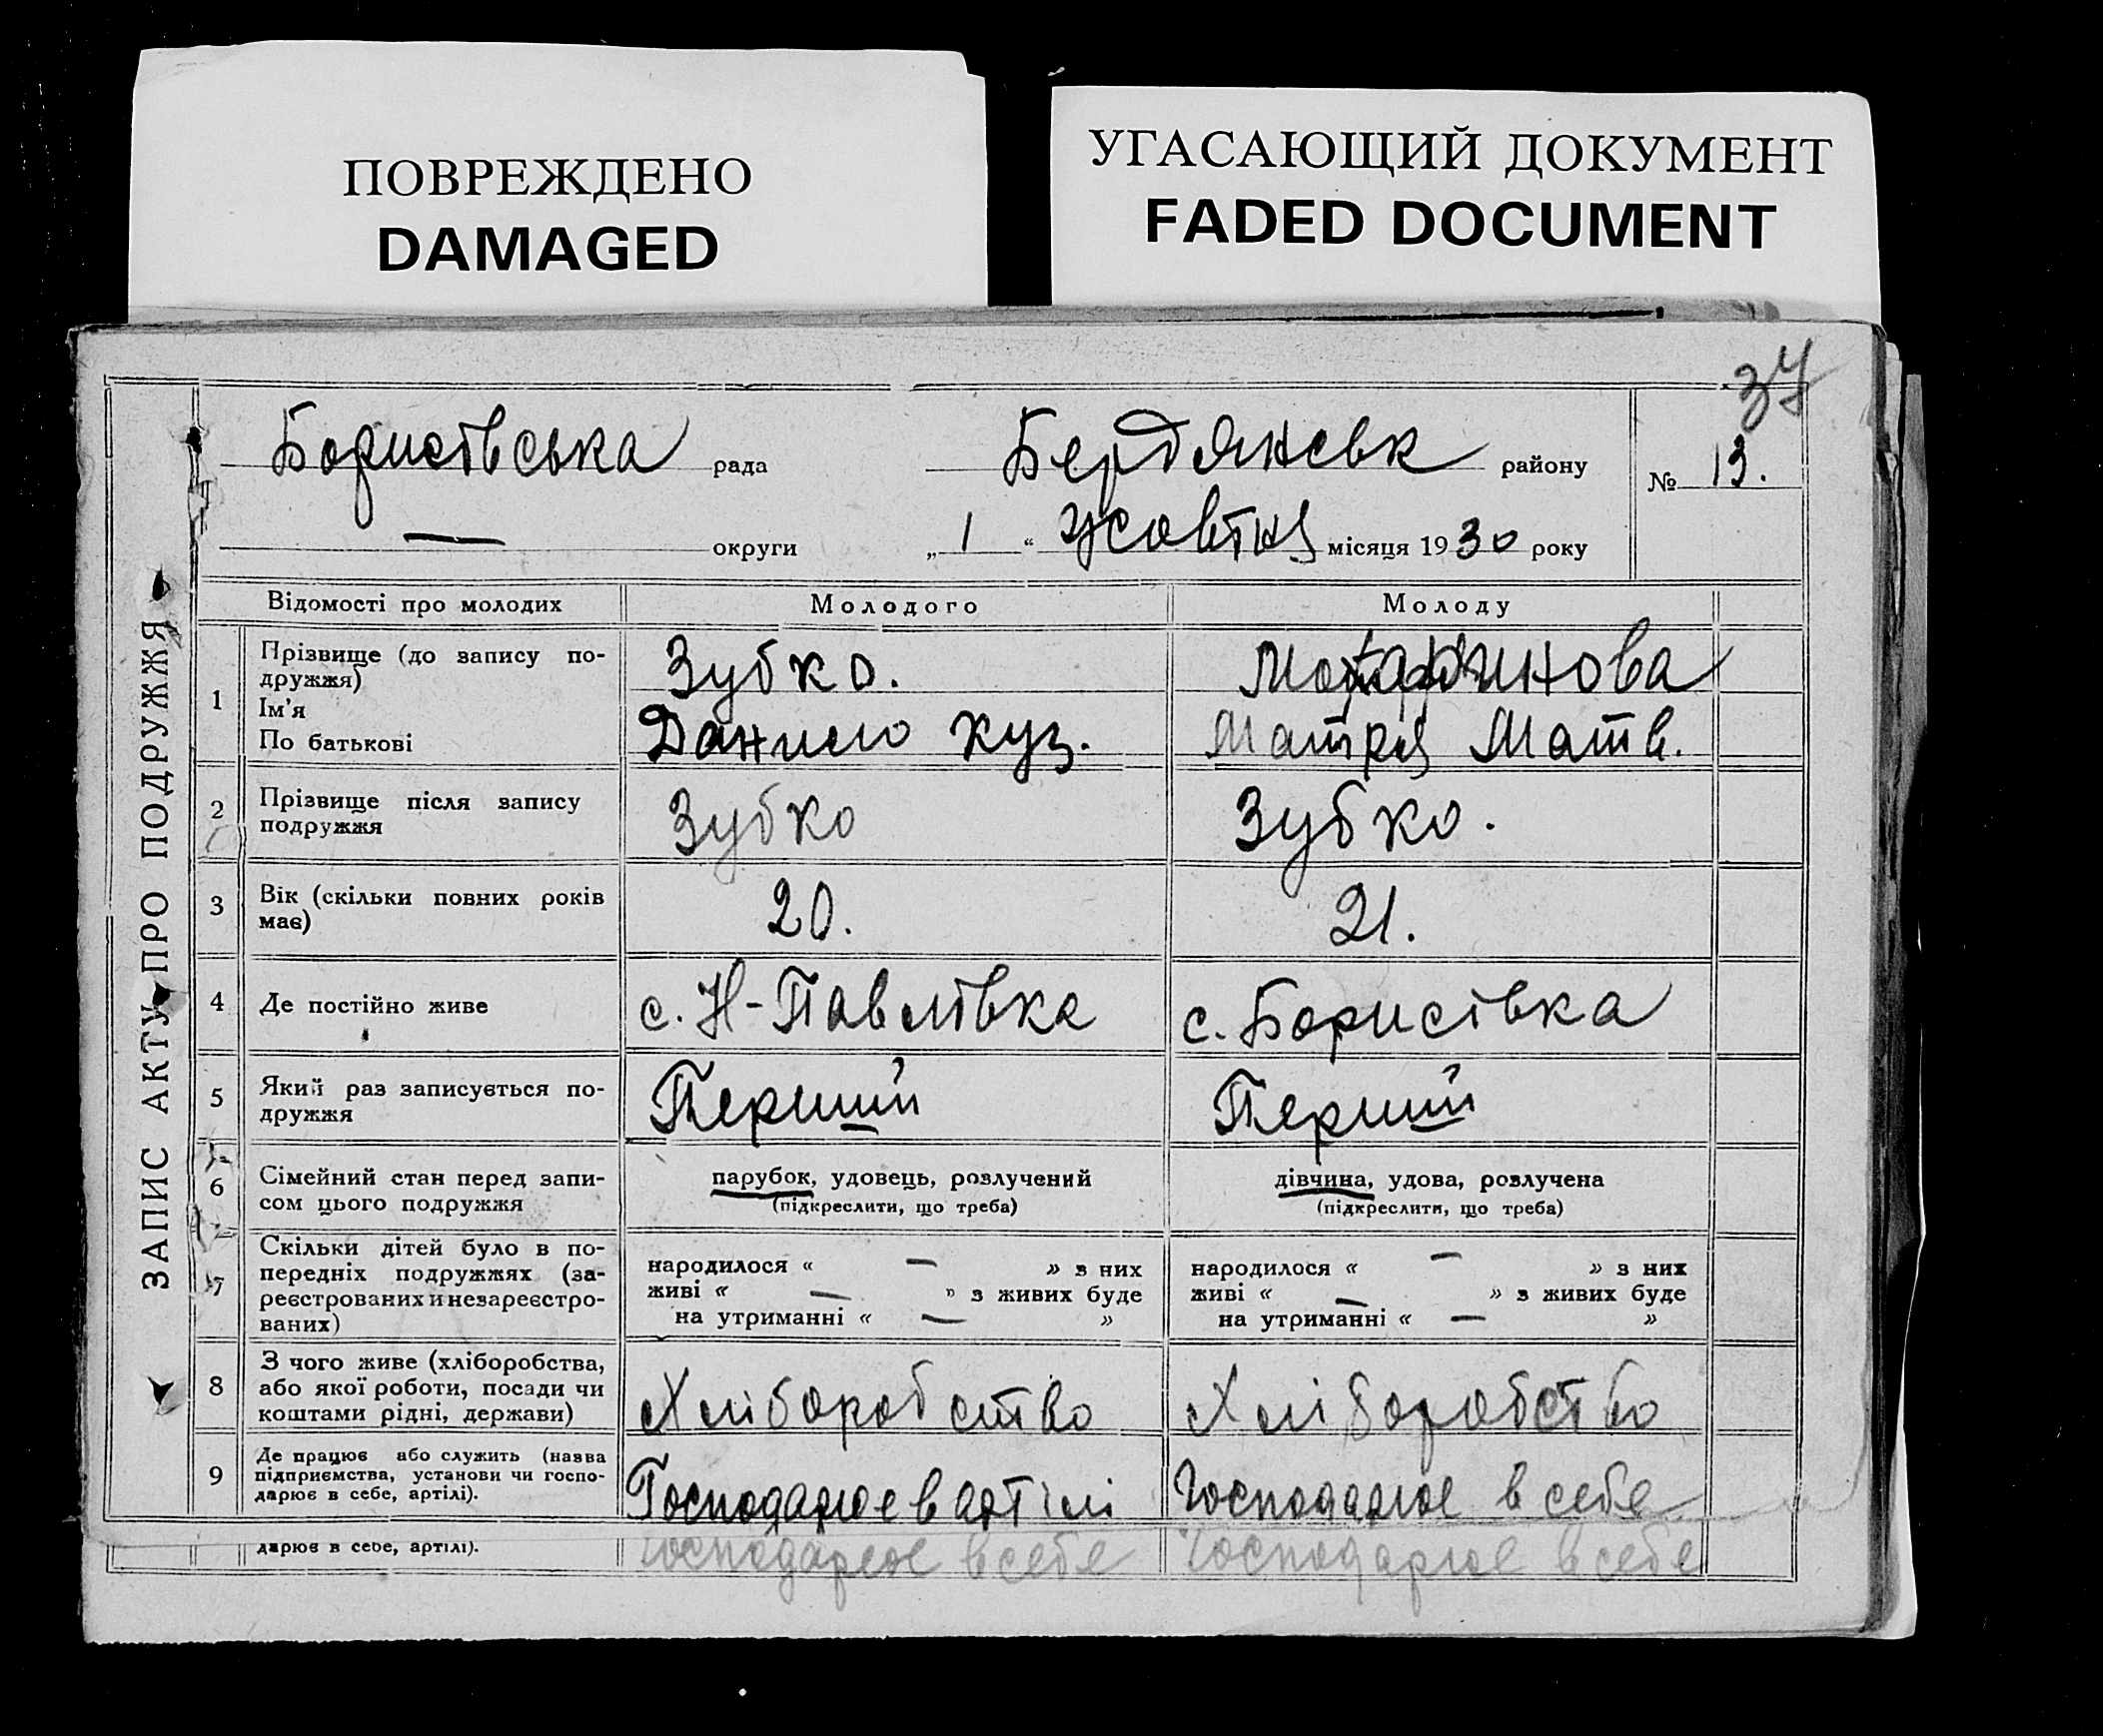 ПОВРЕЖДЕНО
DAMAGED
УГАСАЮЩИЙ ДОКУМЕНТ
FADED DOCUMENT
37
ЗАПИС АКТУ ПРО ПОДРУЖЖЯ
Борисівська рада Бердянськ району № 13.
— округи „1“ Жовтня місяця 1930 року
Відомості про молодих Молодого Молоду
1 Прізвище (до запису по-
дружжя) Зубко.
Ім'я
По батькові Данило Куз. Матря Матв.
2 Прізвище після запису
подружжя Зубко Зубко.
3 Вік (скільки повних років
має) 20. 21.
4 Де постійно живе с. Н-Павлівка с. Борисівка
5 Який раз записується по-
дружжя Перший Перший
6 Сімейний стан перед запи-
сом цього подружжя парубок, удовець, розлучений дівчина, удова, розлучена
(підкреслити, що треба) (підкреслити, що треба)
7 Скільки дітей було в по-
передніх подружжях (за-
реєстрованих и незареєстро-
ваних)
народилося « — » з них народилося « — » з них
живі « — » з живих буде живі « — » з живих буде
на утриманні « — » на утриманні « — »
8 З чого живе (хліборобства,
або якої роботи, посади чи
коштами рідні, держави) Хліборобство Хліборобство
9 Де працює або служить (назва
підприємства, установи чи госпо-
дарює в себе, артілі). Господарює в артілі Господарює в себе
дарює в себе, артілі). Господарює в себе Господарює в себе